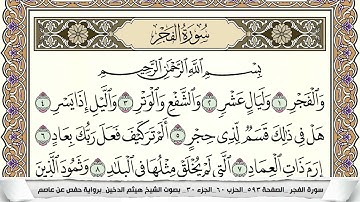 سُورَةُ الفَجْرِ
بِسْمِ اللَّهِ الرَّحْمَٰنِ الرَّحِيمِ
وَالْفَجْرِ ١ وَلَيَالٍ عَشْرٍ ٢ وَالشَّفْعِ وَالْوَتْرِ ٣ وَاللَّيْلِ إِذَا يَسْرِ ٤
هَلْ فِي ذَٰلِكَ قَسَمٌ لِّذِي حِجْرٍ ٥ أَلَمْ تَرَ كَيْفَ فَعَلَ رَبُّكَ بِعَادٍ ٦
إِرَمَ ذَاتِ الْعِمَادِ ٧ الَّتِي لَمْ يُخْلَقْ مِثْلُهَا فِي الْبِلَادِ ٨ وَثَمُودَ الَّذِينَ
سورة الفجر _الصفحة ٥٩٣_ الحزب ٦٠_ الجزء ٣٠_ بصوت الشيخ هيثم الدخين_ برواية حفص عن عاصم